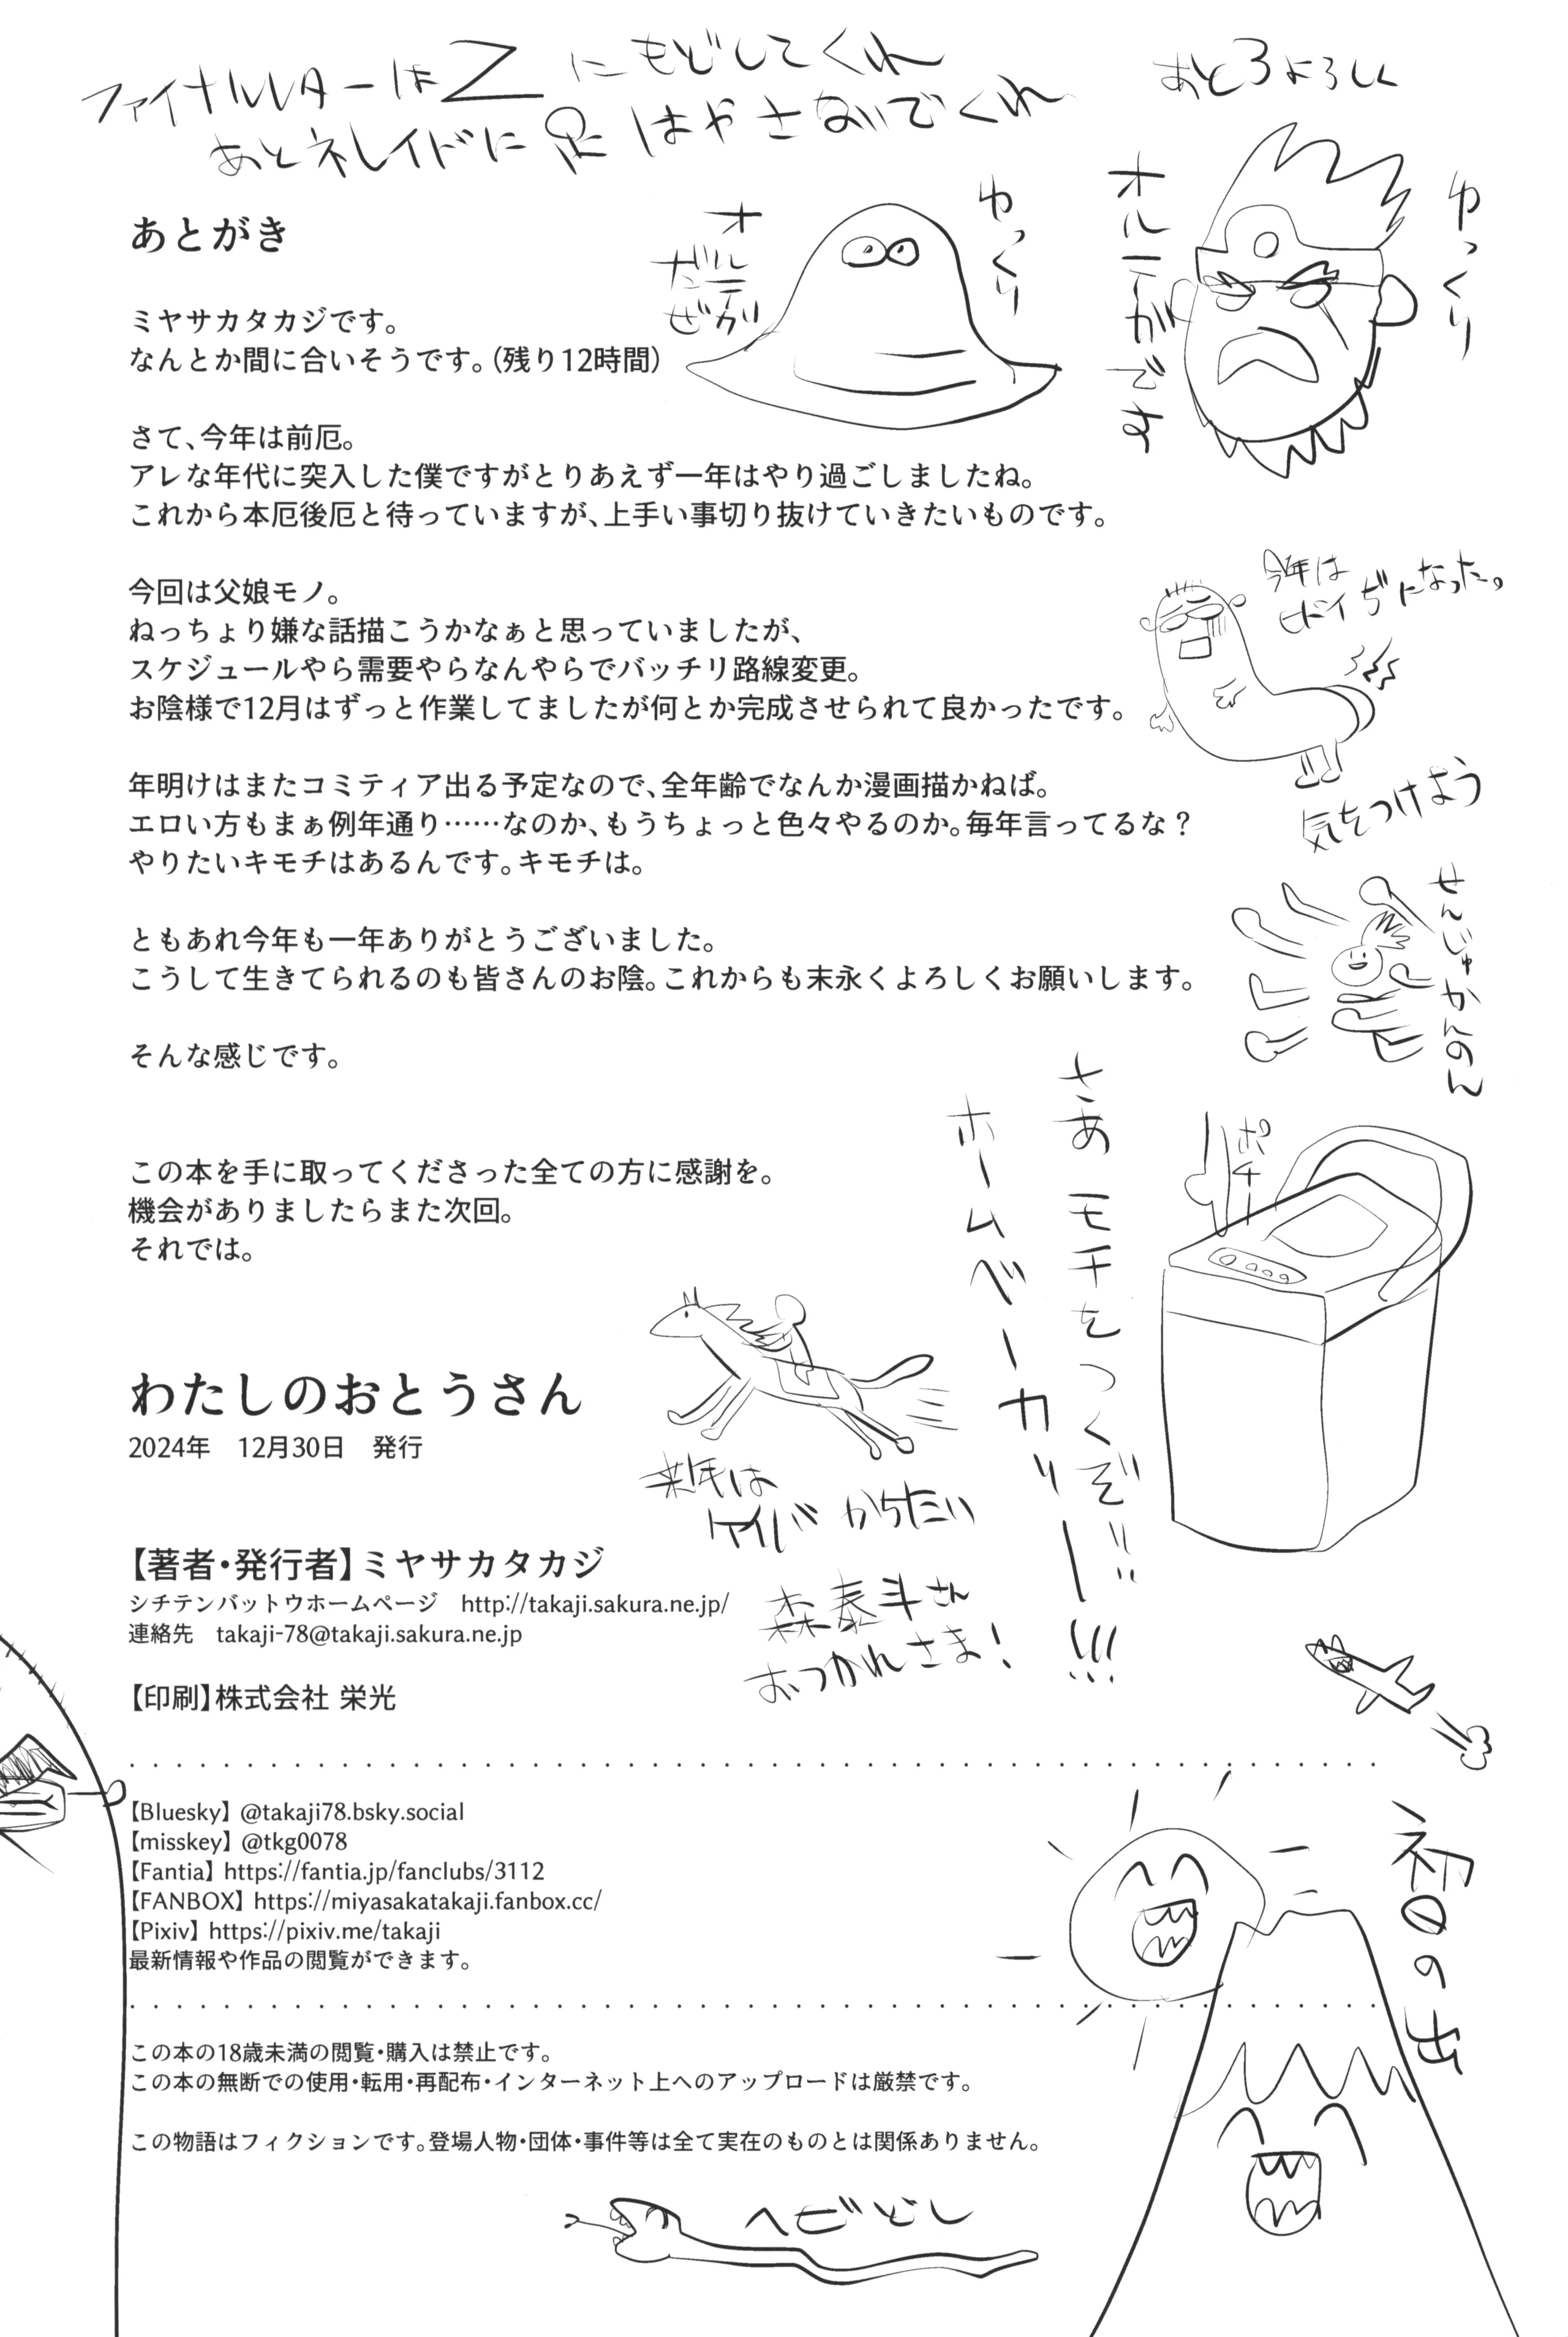 ファイナルレターはZにもどしてくれ
あとネレイドに足はやさないでくれ
あと3よろしく
ゆっくり
オルテガだぜ
ゆっくり
オルテガです
あとがき
ミヤサカタカジです。
なんとか間に合いそうです。(残り12時間)
さて、今年は前厄。
アレな年代に突入した僕ですがとりあえず一年はやり過ごしましたね。
これから本厄後厄と待っていますが、上手い事切り抜けていきたいものです。
今回は父娘モノ。
ねっちょり嫌な話描こうかなぁと思っていましたが、
スケジュールやら需要やらなんやらでバッチリ路線変更。
お陰様で12月はずっと作業してましたが何とか完成させられて良かったです。
今年は
ヒドイぢになった。
気をつけよう
年明けはまたコミティア出る予定なので、全年齢でなんか漫画描かねば。
エロい方もまぁ例年通り……なのか、もうちょっと色々やるのか。毎年言ってるな?
やりたいキモチはあるんです。キモチは。
せんじゅかんのん
ともあれ今年も一年ありがとうございました。
こうして生きてられるのも皆さんのお陰。これからも末永くよろしくお願いします。
そんな感じです。
さあ モチをつくぞ!!
ホームベーカリー!!!
ポチー
この本を手に取ってくださった全ての方に感謝を。
機会がありましたらまた次回。
それでは。
わたしのおとうさん
2024年 12月30日 発行
来年は
ケイバ かちたい
森泰斗さん
おつかれさま!
【著者・発行者】ミヤサカタカジ
シチテンバットウホームページ http://takaji.sakura.ne.jp/
連絡先 takaji-78@takaji.sakura.ne.jp
【印刷】株式会社 栄光
【Bluesky】@takaji78.bsky.social
【misskey】@tkg0078
【Fantia】https://fantia.jp/fanclubs/3112
【FANBOX】https://miyasakatakaji.fanbox.cc/
【Pixiv】https://pixiv.me/takaji
最新情報や作品の閲覧ができます。
初日の出
この本の18歳未満の閲覧・購入は禁止です。
この本の無断での使用・転用・再配布・インターネット上へのアップロードは厳禁です。
この物語はフィクションです。登場人物・団体・事件等は全て実在のものとは関係ありません。
ヘビどし